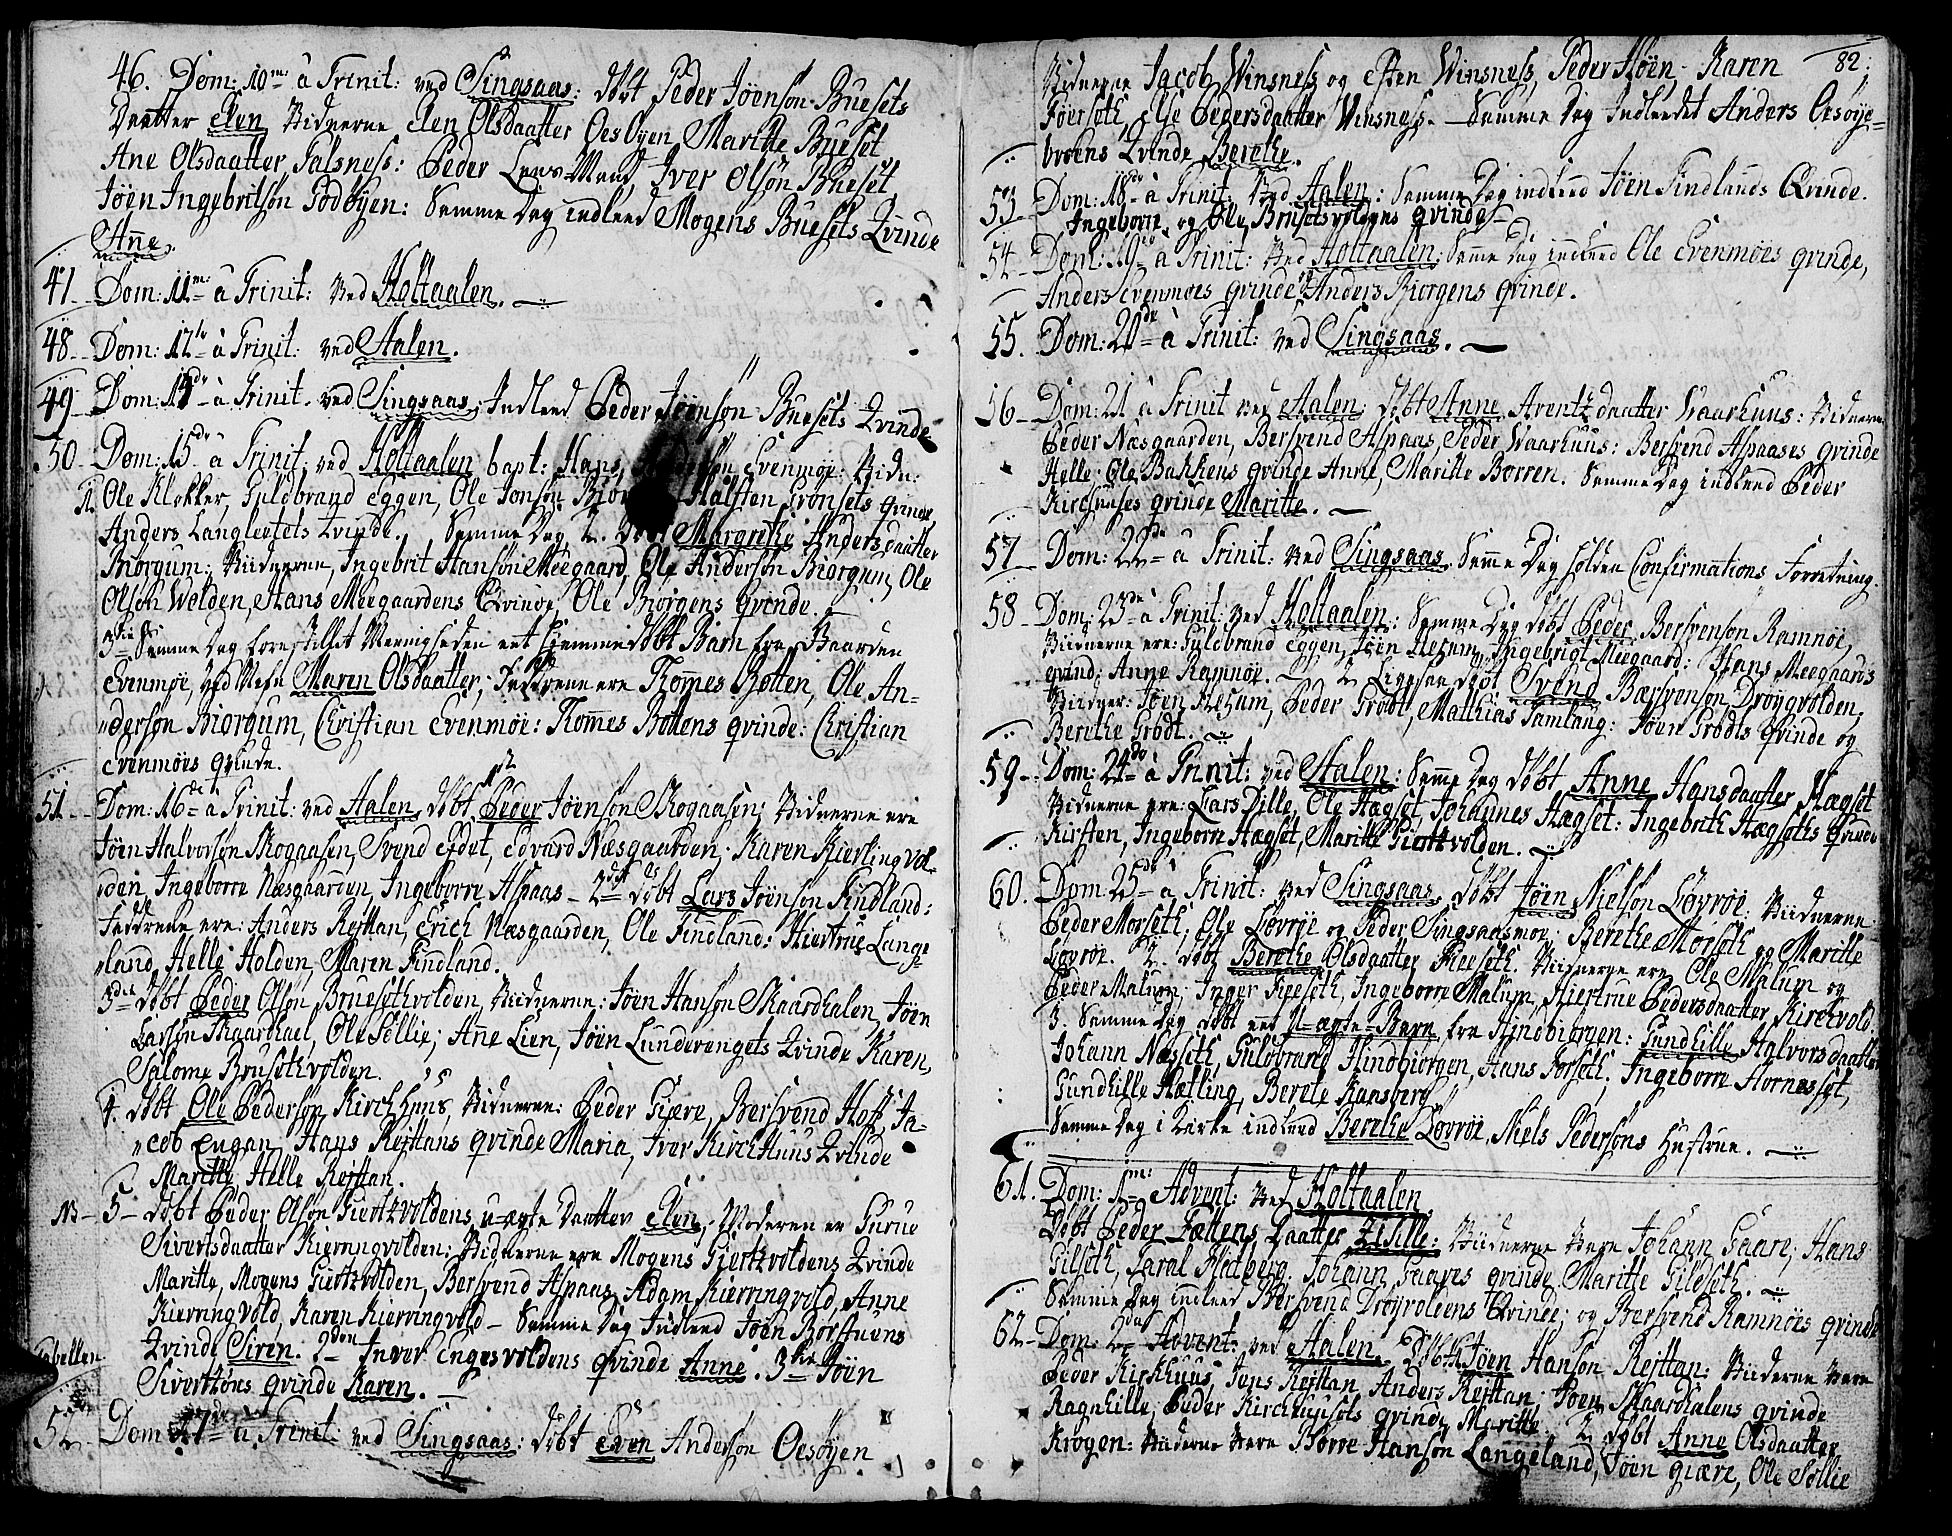 46. Dom: 10me à Trinit: ved Singsaas: døbt Peder Jøensøn Buesets
Daatter Elen, Vidnerne Elen Olsdaatter Oesøyen Marithe Bueset
Ane Olsdaatter Talsness: Peder Lens-Mand, Iver Olsøn Bueset,
Jøen Ingebritsøn Godøyen: Samme Dag indleed Mogens Buesets Qvinde
Anne.
47. Dom: 11me à Trinit: Ved Holtaalen.
48. Dom: 12te à Trinit: ved Aalen.
49. Dom: 13de à Trinit. ved Singsaas, Indleed Peder Jøensøn Buesets Qvinde
50. Dom: 15de à Trinit: ved Holtaalen bapt: Hans Evenmøe: Vidn:
1. Ole Klokker, Guldbrand Eggen, Ole Jonsøn Halften Grønsets qvinde
Anders Langleetets Qvinde. Samme Dag 2. Døbt Margrethe Anders daatter
Biørgum: Vidnerne, Ingebrit Hansøn Meegaard, Ole Andersøn Biørgum, Ole
Olsøn Wolden, Hans Meegaardens Qvinde, Ole Biørgens qvinde.
3die Samme Dag forestillet Menigheden eet hiemmedøbt Barn fra Baarden
Evenmøe, ved Nafn Maren Olsdaatter; Faddrene ere Thomes Botten, Ole An-
dersøn Biørgum, Christian Evenmøe: Thomes Bottens qvinde: Christian
Evenmøes qvinde.
51. Dom: 16de à Trinit: ved Aalen, døbt Peder Jøensøn Skogaasen; Vidnerne ere
Jøen Halvorsøn Skogaasen, Svend Eidet, Edvard Næsgaarden, Karen Kierling vol-
den, Ingeborre Næsgaarden, Ingeborre Aspaas - 2det døbt Lars Jøensøn Findland:
Faddrene ere: Anders Reittan, Erich Næsgaarden, Ole Findland: Hiertrue Lange
land, Helle Holden, Maren Findland.
3die døbt Peder Olsøn Bruesethvolden, Vidnerne: Jøen Hansøn Skaardhalen, Jøen
Larsøn Skaardhael, Ole Sollie; Ane Lien, Jøen Lunderengets Qvinde Karen,
Salome Brusethvolden.
4. døbt Ole Pedersøn Kirchhuus, Vidnerne: Peder Giære, Bersvend Hof, Ja-
cob Engan, Hans Reittans qvinde Maria, Iver KirchHuus Qvinde
Marithe, Helle Reittan.
NB - 5 - døbt Peder Olsøn Giertvoldens u-ægte daatter Elen, Moderen er Gurue
Sivertsdaatter Kierringvolden: Vidnerne ere Mogens Giertvoldens Qvinde
Maritte, Mogens Giertvolden, Bersvend Aspaas, Adam Kierringvold, Anne
Kierringvold, Karen Kierringvold - Samme Dag Indleed Jøen Borstuens
Qvinde Siren. 2den Inver Engesvoldens qvinde Anne. 3die Jøen
Sivertsøns qvinde Karen.
Tabellen
52. Dom 17de à Trinit: ved Singsaas: døbt Even Andersøn Oesøyen
82.
Vidnerne Jacob Winsness og Esten Winsness, Peder Høen. Karen
Jøerseth, Else Pedersdaatter Winsness. - Samme Dag Indleedet Anders Oesøye-
broens Qvinde Berethe.
53 - Dom: 18de à Trinit. Ved Aalen: Samme Dag indleed Jøen Findlands Qvinde.
Ingeborre, og Ole Brusetsvoldens qvinde
54 - Dom: 19de à Trinit: Ved Holtaalen: Same Dag indleed Ole Evenmøes qvinde,
Anders Evenmøes qvinde og Anders Biorgens qvinde.
55. Dom: 20de à Trinit: ved Singsaas.
56 - Dom: 21 à Trinit ved Aalen; døbt Anne Arentz daatter Waarhuus: Vidnerne
Peder Næsgaarden, Bersvend Aspaas, Peder Waarhuus: Bersvend Aspaases qvinde
Helle, Ole Bakkens qvinde Anne, Maritte Borren. Samme Dag indleed Peder
Kirchhuses qvinde Maritte.
57 - Dom: 22de à Trinit: ved Singsaas. Same Dag holden Confirmations Forretning.
58 - Dom: 23de à Trinit: ved Holtaalen: Samme Dag døbt Peder Bersvensøn Ramnøe,
Vidnerne ere: Guldbrand Eggen, Jøen Hexum, Ingebrigt Meegaard: Hans Meegaards
qvind: Anne Ramnøe. - 2 Ligesaa døbt Svend Bersvensøn Drøygvolden,
Vidner: Jøen Hexum, Peder Grødt, Mathias Samlang: Jøen Grødts qvinde og
Berethe Grødt.
59 - Dom: 24de à Trinit: ved Aalen: Same Dag døbt Anne Hansdaatter Hægset
Vidnerne ere: Lars Dille, Ole Hægset, Johannes Hægset: Ingebrith Hægseths qvinde
Kirsten, Ingeborre Hægset, Maritte Giertvolden.
60. Dom: 25de à Trinit: ved Singsaas, døbt Jøen Nielsøn Løvrøe: Vidnerne
Peder Morseth, Ole Løvrøe og Peder Singsaasmoe: Berethe Morseth og Maritte
Løvrøe. 2. døbt Berethe Olsdaatter Fleeseth. Vidnerne ere Ole Malum og
Peder Malum; Inger Fleeseth, Ingeborre Malum, Hiertrue Pedersdaatter Kirchvold.
3. Samme Dag døbt eet U-ægte-Barn fra Hindbiorgen: Gundhille Halvorsdaatter
Johann Næsseth, Guldbrand Hindbiorgen, Hans Forseth; Ingeborre Hornesset,
Gundhille Hætling, Berete Kansberg
Samme Dag i Kirke indleed Berethe Løvrøe, Niels Pedersøns Hustrue.
61. Dom: 1me Advent: Ved Holtaalen.
Døbt Peder Fættens Daatter Zidsille: Vidnerne Vare Johann Gaare, Hans
Gilseth, Taral Flatberg: Johann Gaares qvinde Maritte Gildseth.
Samme Dag indleed Bersvend Drøyvoldens Qvinde; og Bersvend Ramnøes qvinde
62 - Dom: 2den Advent: ved Aalen, Døbt Jøen Hansøn Reittan: Vidnerne Vare
Peder Kirkhuus, Jens Reittan, Anders Reittan; Jøen Skaardhalens qvinde
Ragnhille, Peder Kirchhusets qvinde Maritte. 2 døbt Anne Olsdaatter
Krogen: Vidnerne Vare Børre Hansøn Langeland, Jøen giære, Ole Sollie